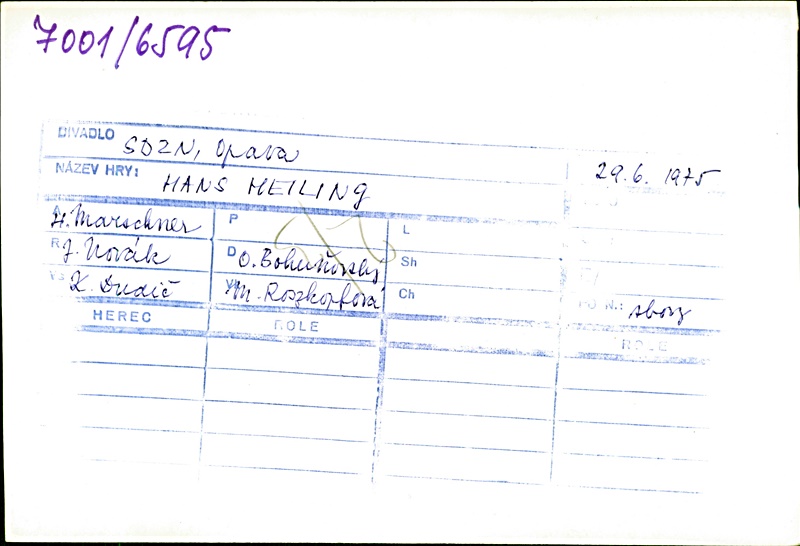 7001/6595
DIVADLO SDZN, Opava 29.6. 1975
NÁZEV HRY: HANS HEILING
H. Marschner P L
R J. Novák D O. Bohuňovský Sh
K. Dudič M. Roszkopfová Ch sborz
HEREC ROLE ROLE